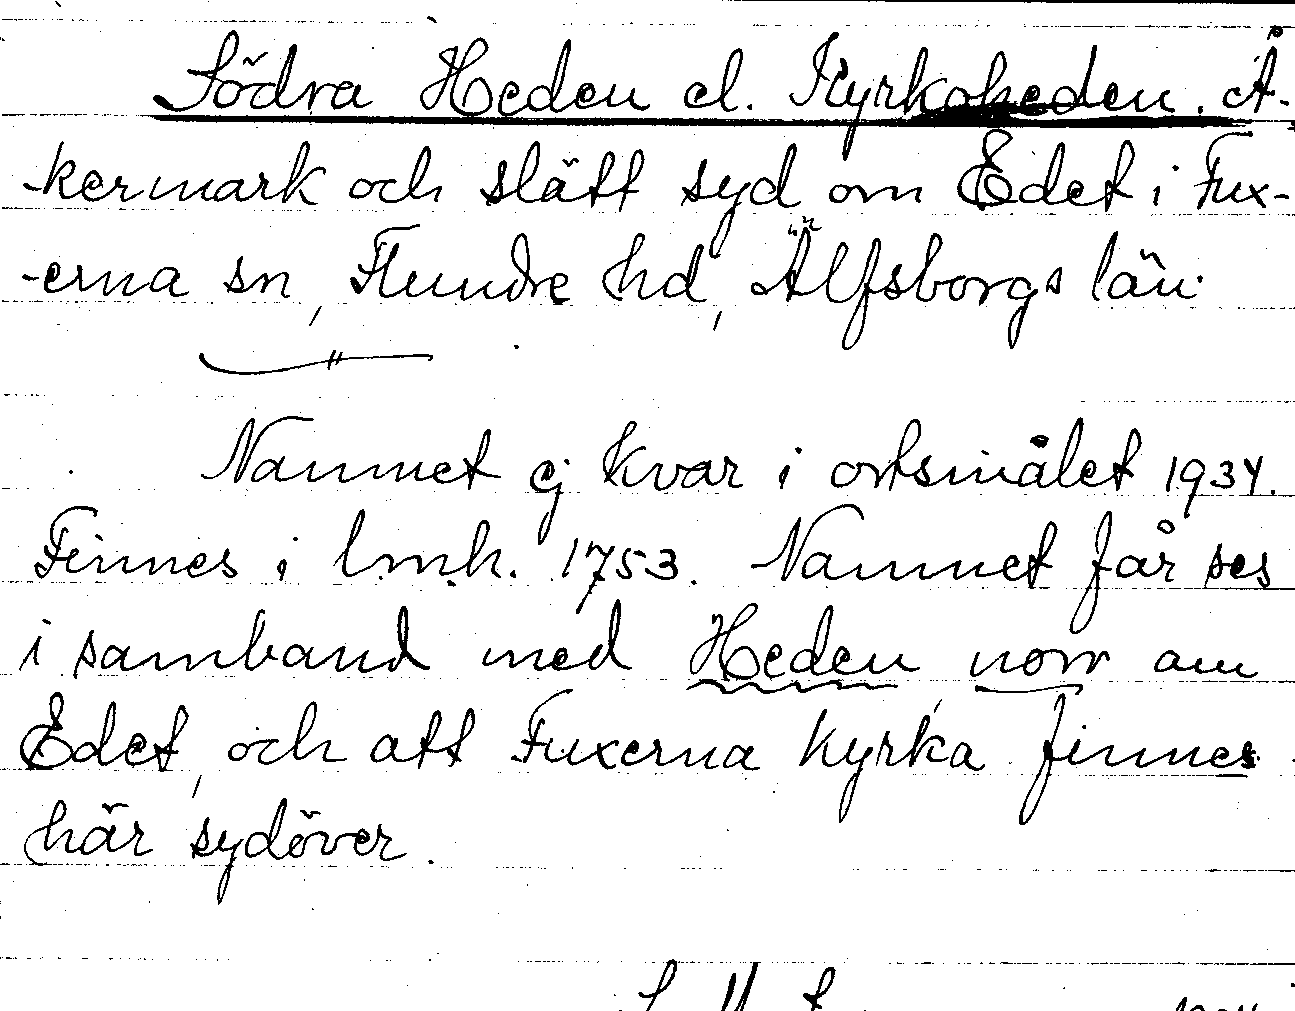 Södra Heden el. Kyrkoheden. Å-
-kermark och slätt syd om Edet i Fux-
-erna sn, Flundre hd, Älfsborgs län.
Namnet ej kvar i ortsmålet 1934.
Finnes i l.m.h. 1753. Namnet får ses
i samband med Heden norr om
Edet, och att Fuxerna kyrka finnes
här sydöver.